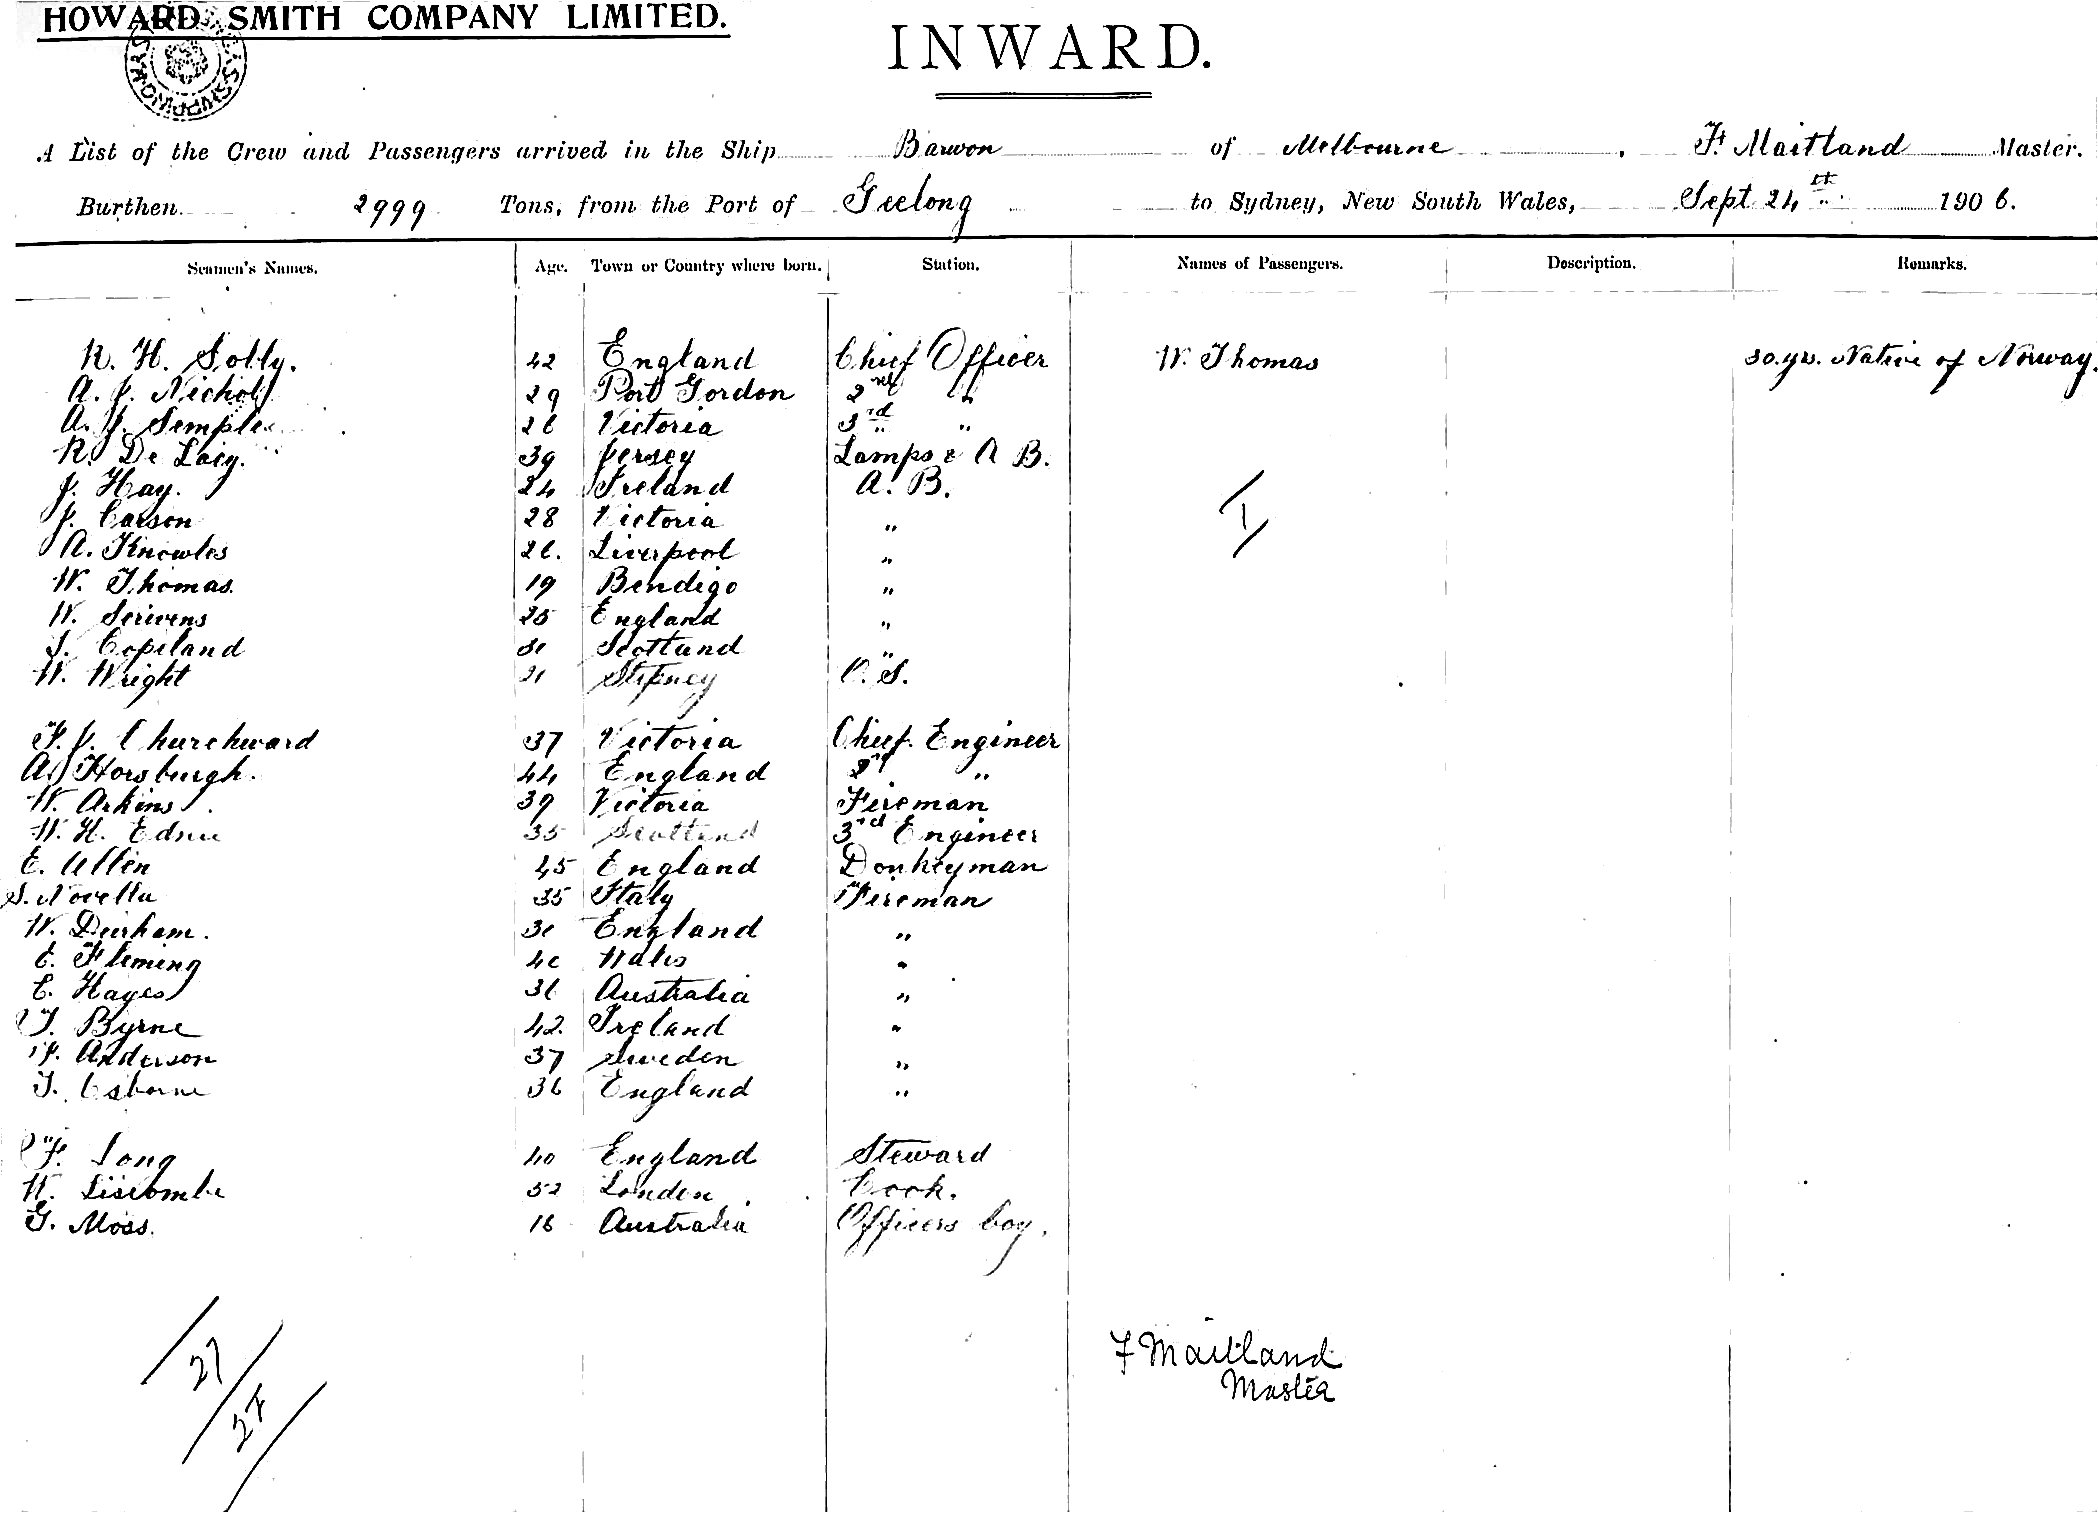 HOWARD SMITH COMPANY LIMITED.
INWARD.
A List of the Crew and Passengers arrived in the Ship Barwon of Melbourne, F. Maitland Master.
Burthen 2999 Tons, from the Port of Geelong to Sydney, New South Wales, Sept 24th 1906.
Seamen's Names. Age. Town or Country where born. Station. Names of Passengers. Description. Remarks.
R. H. Solly. 42 England Chief Officer W. Thomas 30. yrs. Native of Norway.
A. J. Nicholl 29 Port Gordon 2nd "
A. J. Semple 26 Victoria 3rd "
R. De Lacy. 39 Jersey Lamps & A B.
J. Hay. 24 Ireland A. B.
J. Carson 28 Victoria "
A. Knowles 26. Liverpool "
W. Thomas. 19 Bendigo "
W. Scrivens 25 England "
J. Copeland 30 Scotland "
W. Wright 21 Stepney O. S.
F. J. Churchward 37 Victoria Chief Engineer
A. Horsburgh. 44 England 2nd "
W. Arkins 39 Victoria Fireman
W. H. 35 Scotland 3rd Engineer
E. Allen 45 England Donkeyman
S. Novella 35 Italy Fireman
W. Durham. 30 England "
E. Fleming 40 Wales "
E. Hayes 36 Australia "
T. Byrne 42. Ireland "
F. Anderson 37 Sweden "
T. Osborne 36 England "
F. Long 40 England Steward
W. Liscombe 52 London Cook.
G. Moss. 16 Australia Officers boy.
27
27
F Maitland
Master